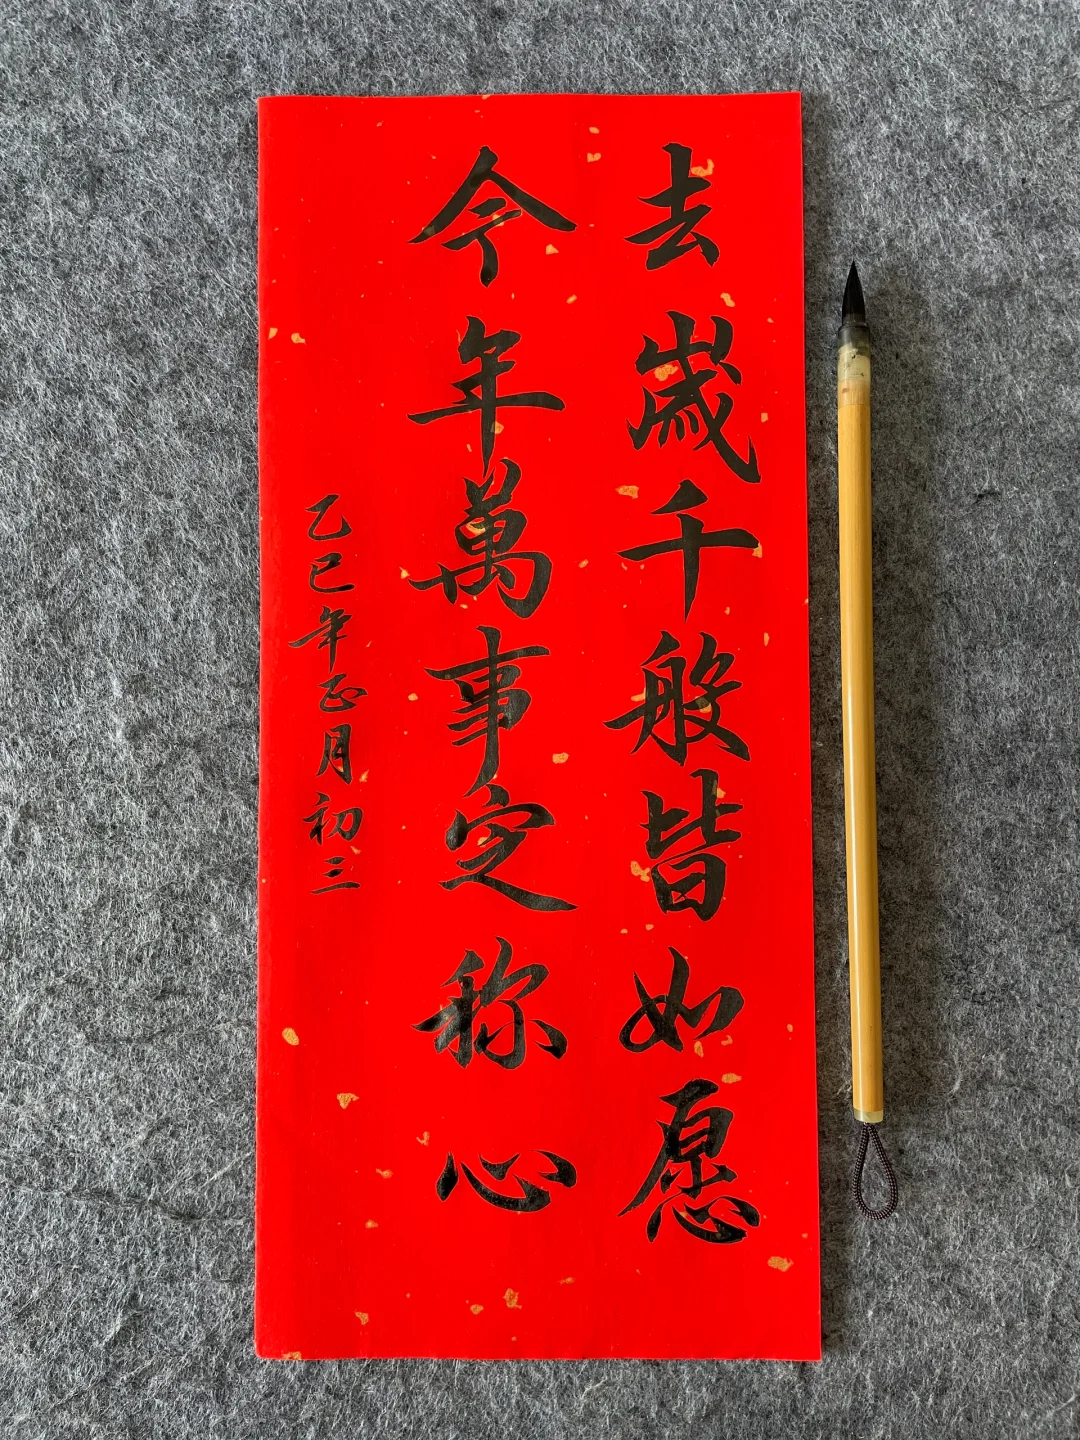 去歲千般皆如愿
今年萬事定称心
乙巳年正月初三